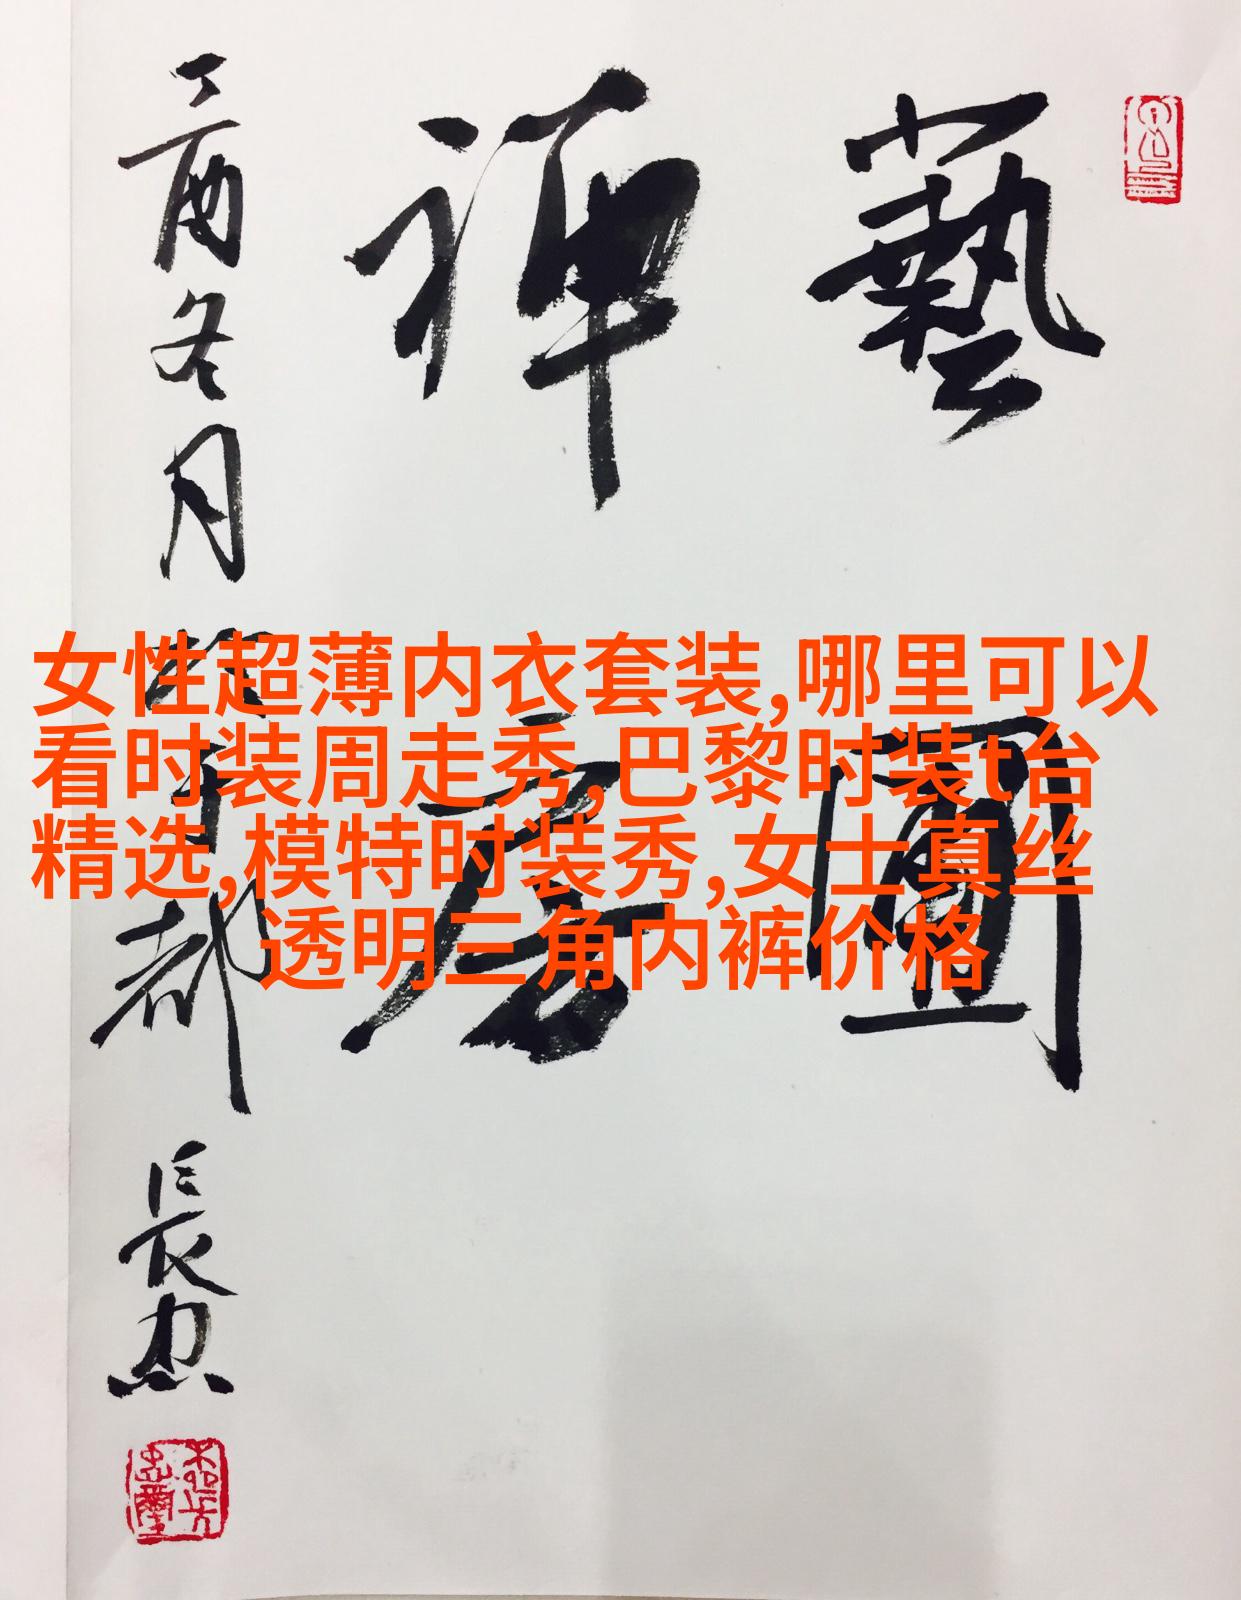 藝圃
禪房
丁酉冬月
於成都
長忠
女性超薄内衣套装,哪里可以
看时装周走秀,巴黎时装t台
精选,模特时装秀,女士真丝
透明三角内裤价格